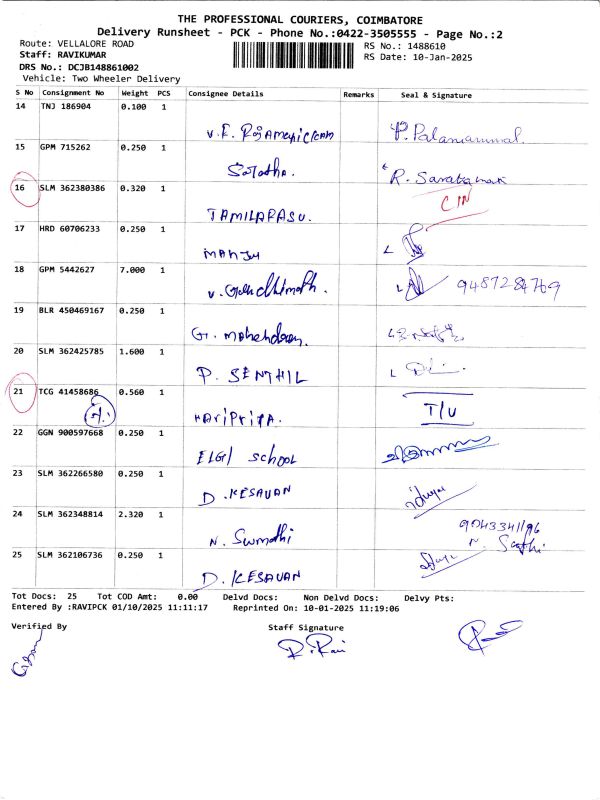 THE PROFESSIONAL COURIERS, COIMBATORE
Delivery Runsheet - PCK - Phone No.:0422-3505555 - Page No.:2
Route: VELLALORE ROAD
RS No.: 1488610
Staff: RAVIKUMAR
RS Date: 10-Jan-2025
DRS No.: DCJB148861002
Vehicle: Two Wheeler Delivery
S No Consignment No Weight PCS Consignee Details Remarks Seal & Signature
14 TNJ 186904 0.100 1
P. Palaniammal
15 GPM 715262 0.250 1
R. Saravanan
16 SLM 362380386 0.320 1
CIN
TAMILARASU.
17 HRD 60706233 0.250 1
MANJU
18 GPM 5442627 7.000 1
19 BLR 450469167 0.250 1
G. Mahendran.
20 SLM 362425785 1.600 1
P. SENTHIL
21 TCG 41458686 0.560 1
HARIPRIYA. T/U
22 GGN 900597668 0.250 1
ELGI SCHOOL
23 SLM 362266580 0.250 1
D. KESAVAN
24 SLM 362348814 2.320 1
9043341196
N. Sumathi
25 SLM 362106736 0.250 1
D. KESAVAN
Tot Docs: 25 Tot COD Amt: 0.00 Delvd Docs: Non Delvd Docs: Delvy Pts:
Entered By :RAVIPCK 01/10/2025 11:11:17 Reprinted On: 10-01-2025 11:19:06
Verified By Staff Signature
R. Ravi